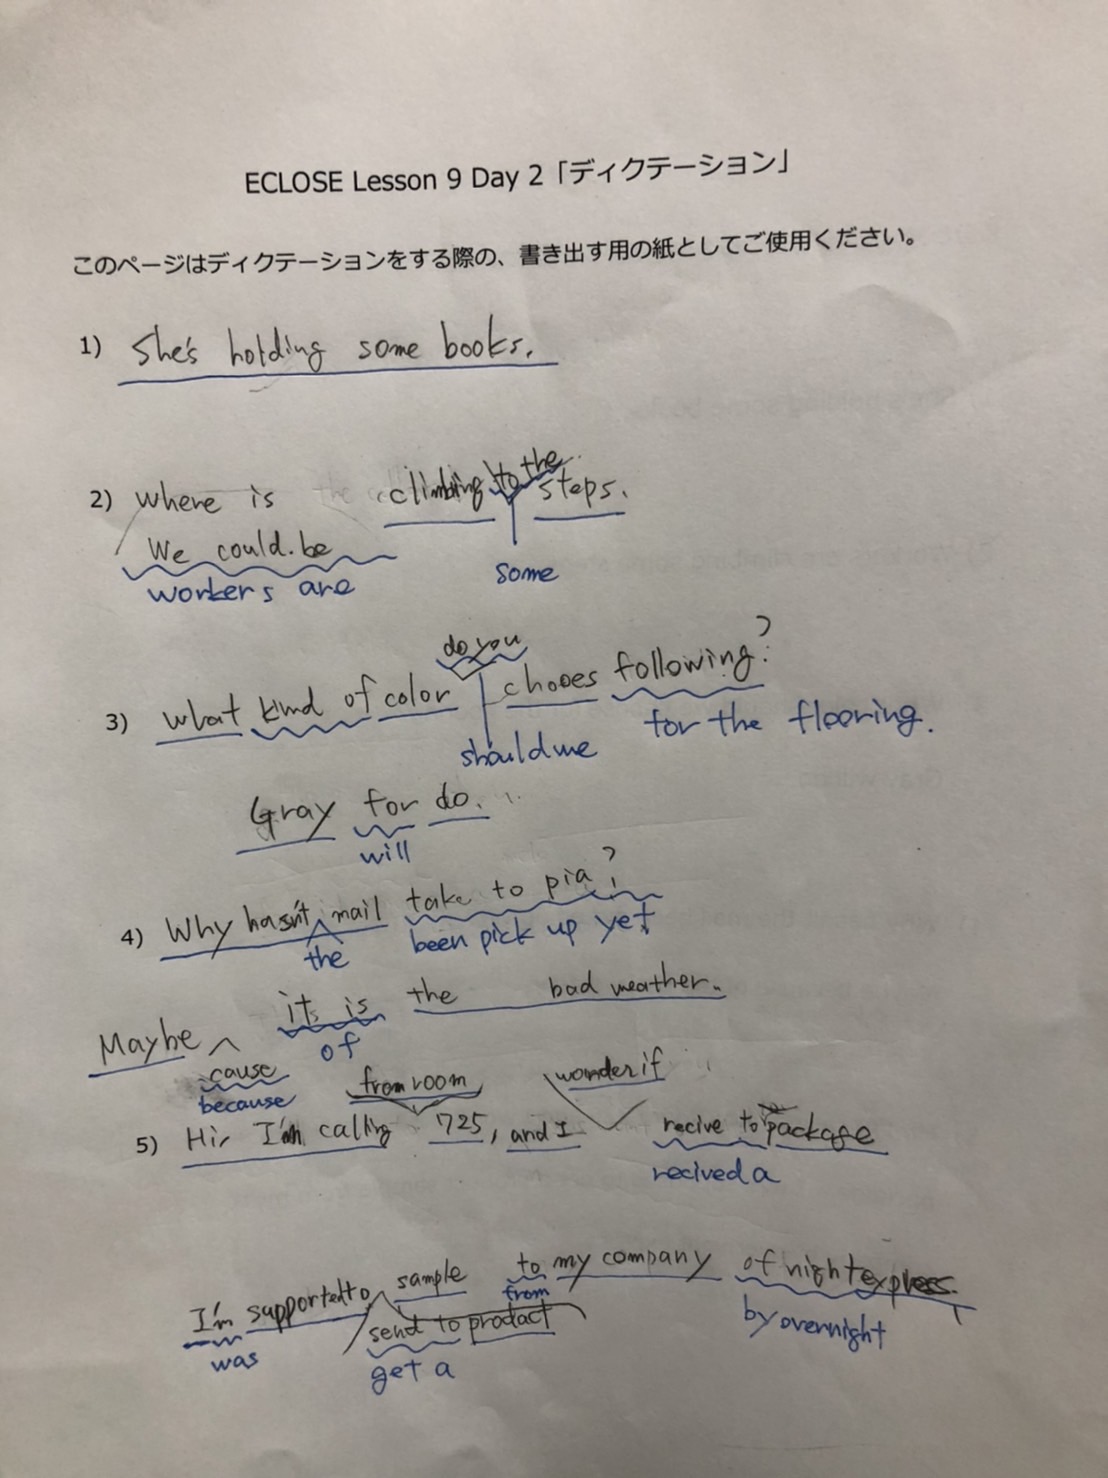 ECLOSE Lesson 9 Day 2「ディクテーション」
このページはディクテーションをする際の、書き出す用の紙としてご使用ください。
1) She's holding some books.
to the
2) Where is climbing steps.
We could be
some
workers are
do you
3) What kind of color chooes following?
for the flooring.
should me
Gray for do.
will
4) Why hasn't mail take to pia?
the been pick up yet
it is the bad weather.
Maybe of
cause
because
from room wonder if
5) Hi, I'm calling 725, and I recive to package
recived a
I'm supported to sample to my company of night express.
from
was send to product by overnight
get a